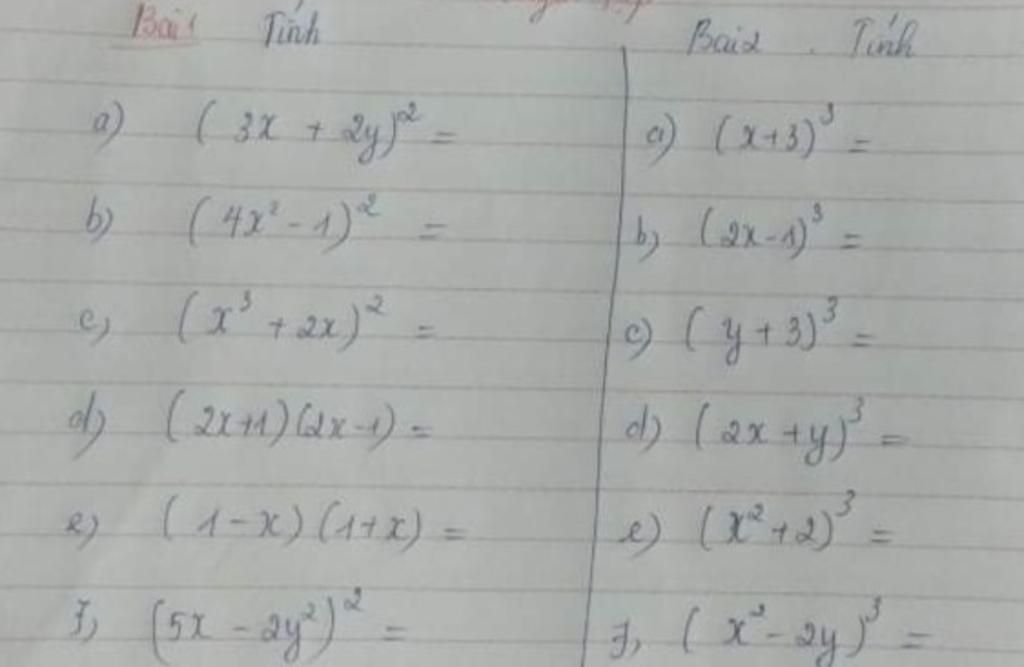 Bài 1 Tính
a) (3x + 2y)² =
b) (4x² - 1)² =
c) (x³ + 2x)² =
d) (2x+1)(2x-1) =
e) (1-x)(1+x) =
f) (5x - 2y²)² =
Bài 2. Tính
a) (x+3)³ =
b) (2x-1)³ =
c) (y+3)³ =
d) (2x+y)³ =
e) (x²+2)³ =
f) (x² - 2y)³ =